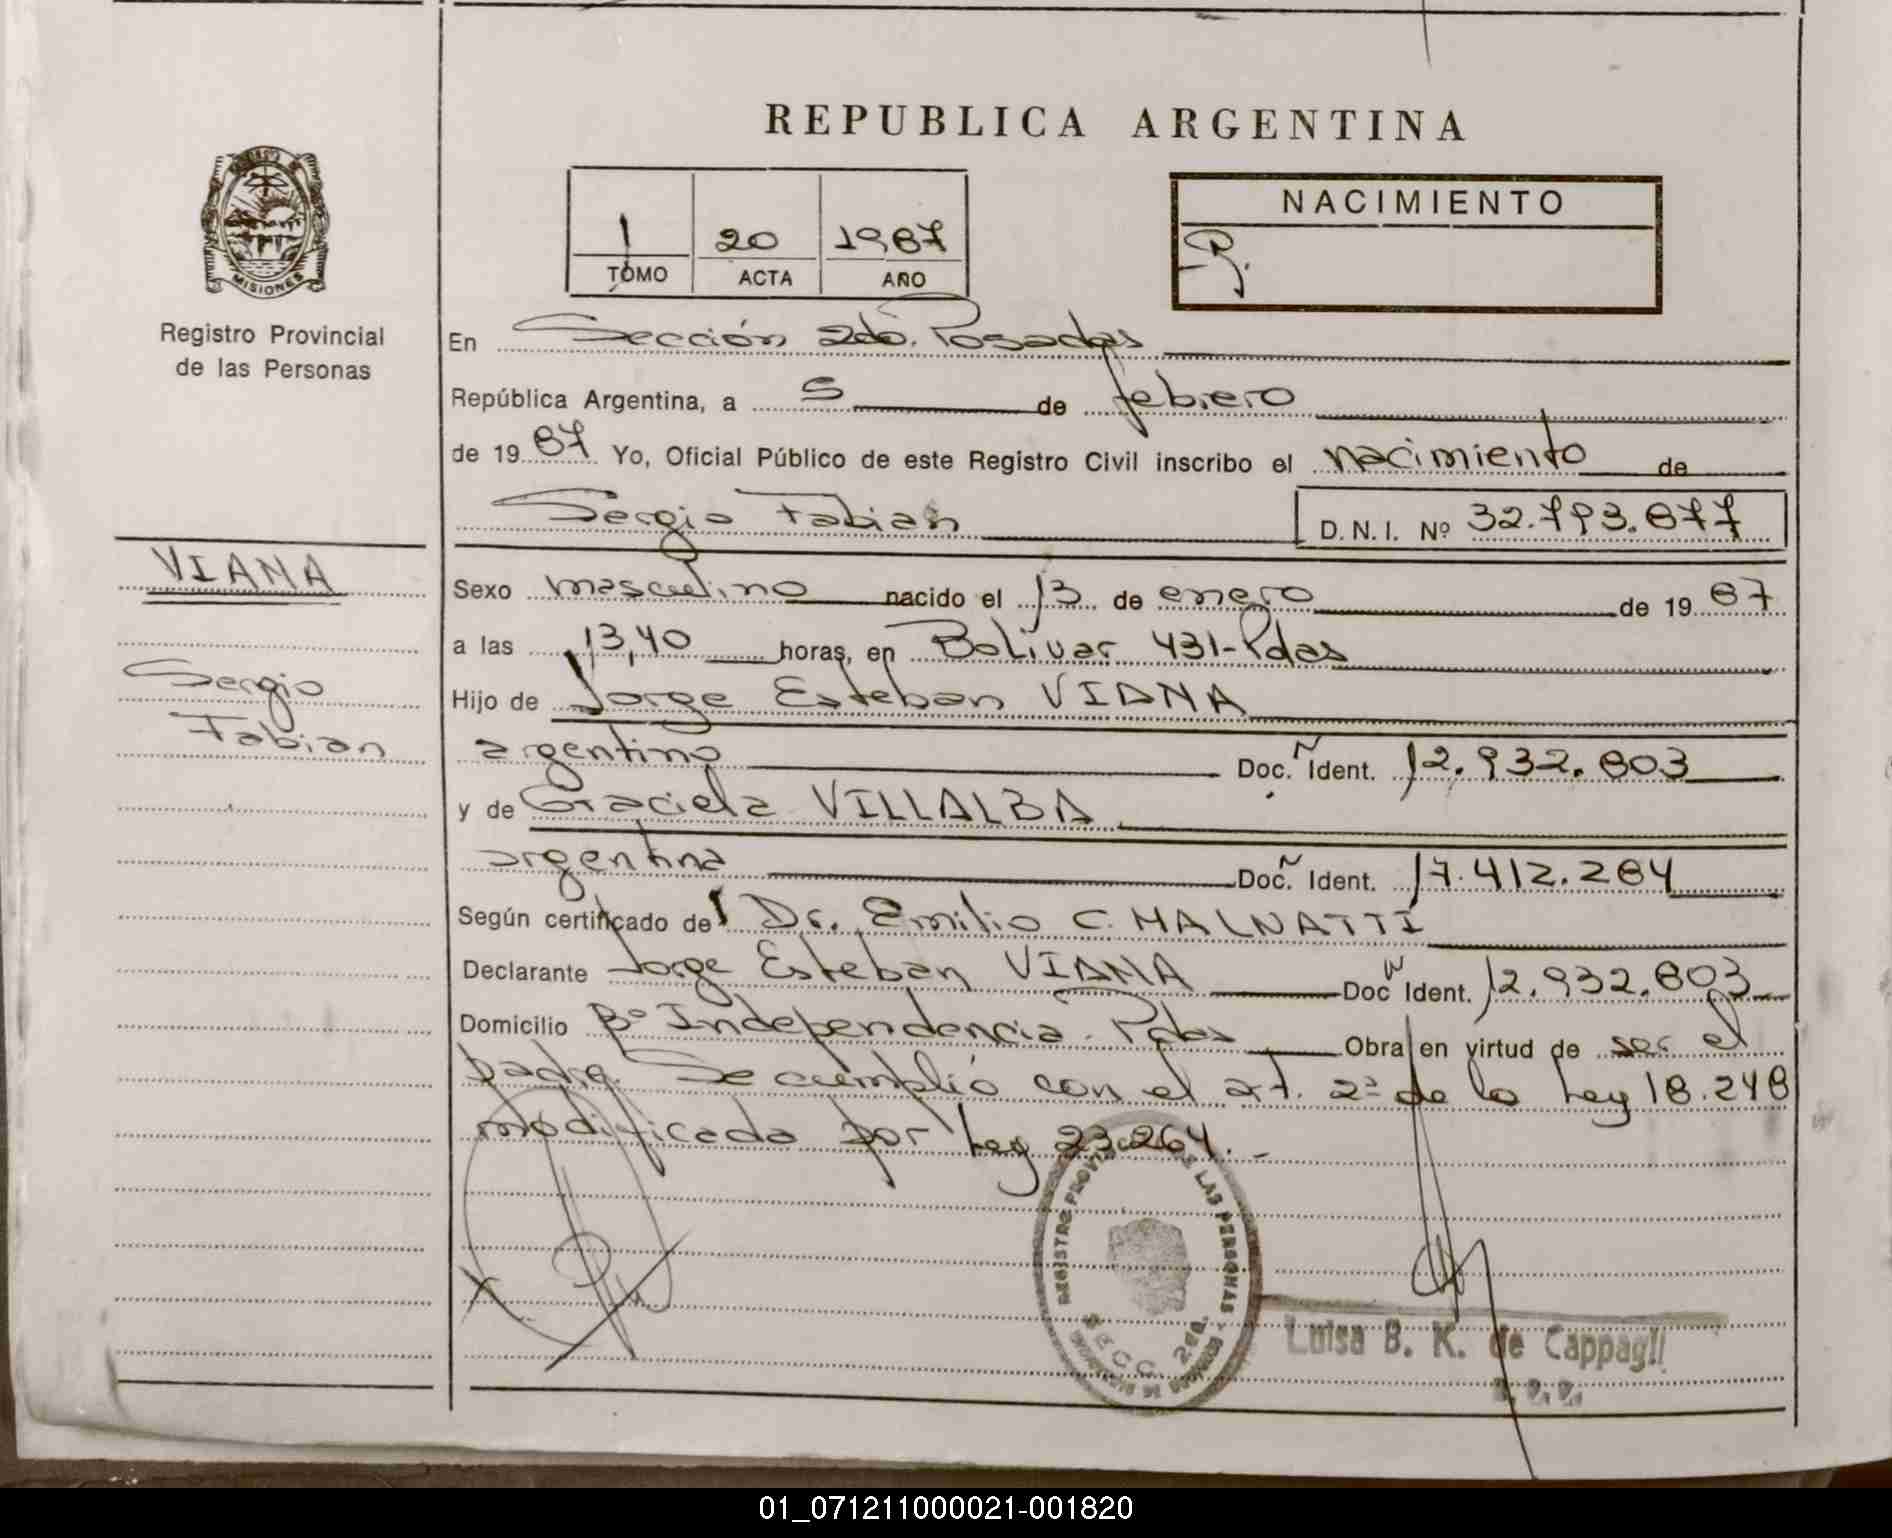 REPUBLICA ARGENTINA
MISIONES
Registro Provincial
de las Personas
1 20 1987
TOMO ACTA AÑO
NACIMIENTO
En Sección 2da. Posadas
República Argentina, a 5 de febrero
de 1987 Yo, Oficial Público de este Registro Civil inscribo el nacimiento de
Sergio Fabian D.N.I. Nº 32.793.877
VIANA
Sergio
Fabian
Sexo masculino nacido el 13 de enero de 1987
a las 13,40 horas, en Bolívar 431-Pdas
Hijo de Jorge Esteban VIANA
argentino Doc. Ident. 12.932.803
y de Graciela VILLALBA
argentina Doc. Ident. 17.412.284
Según certificado del Dr. Emilio C. MALNATTI
Declarante Jorge Esteban VIANA Doc Ident. 12.932.803
Domicilio Bº Independencia. Pdas Obra en virtud de ser el
padre. Se cumplió con el art. 2º de la Ley 18.248
modificada por Ley 23.264.-
REGISTRO PROVINCIAL DE LAS PERSONAS
SECC. 2da.
Luisa B. K. de Cappagli
01_071211000021-001820